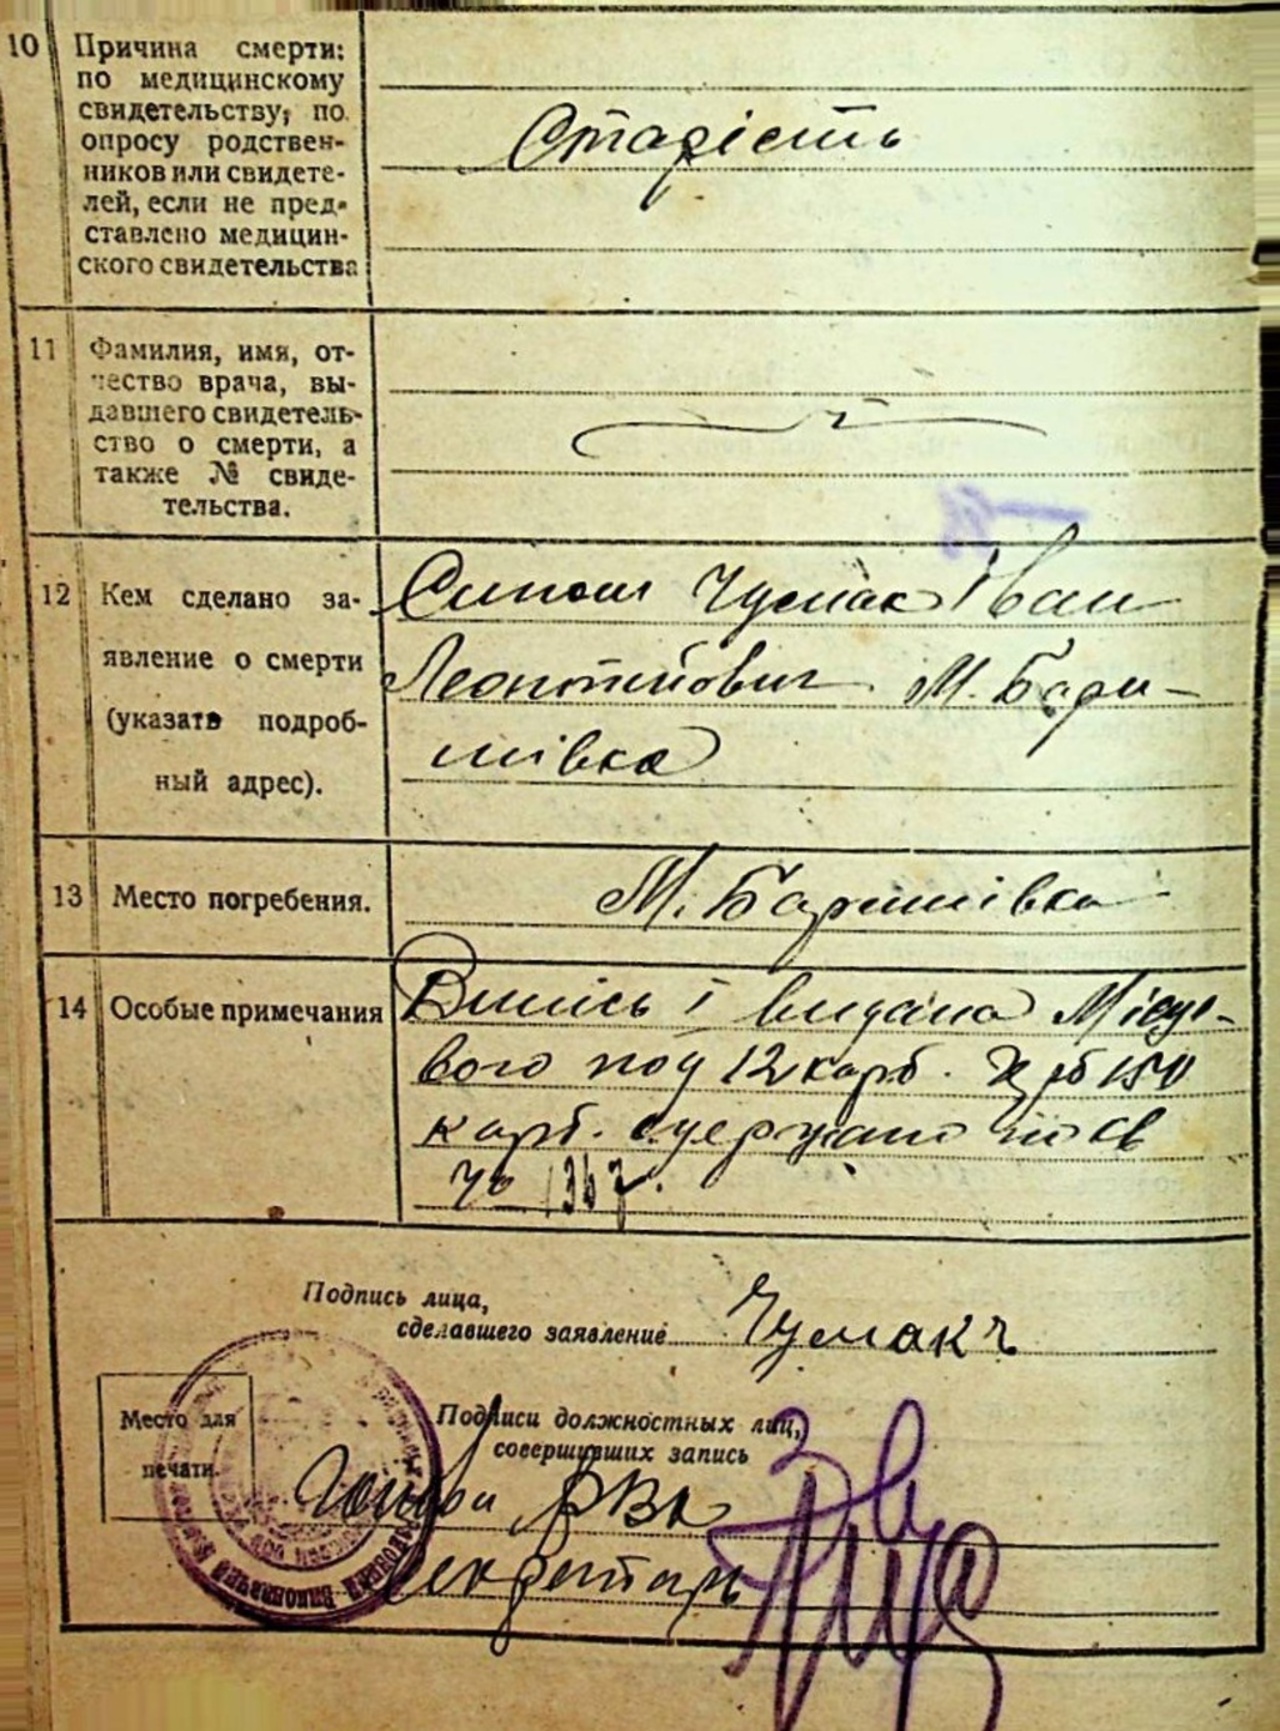 10 Причина смерти:
по медицинскому
свидетельству, по
опросу родствен-
ников или свидете-
лей, если не пред-
ставлено медицин-
ского свидетельства
Старість
11 Фамилия, имя, от-
чество врача, вы-
давшего свидетель-
ство о смерти, а
также № свиде-
тельства.
12 Кем сделано за-
явление о смерти
(указать подроб-
ный адрес).
Чумак Іван
Леонтійович М. Бари-
шівка
13 Место погребения.
М. Баришівка
14 Особые примечания
і видана
вого под 12 карб. 150
карб.
Подпись лица,
сделавшего заявление Чумакъ
Место для
печати.
Подписи должностных лиц,
совершивших запись
Голова РВК
Секретарь